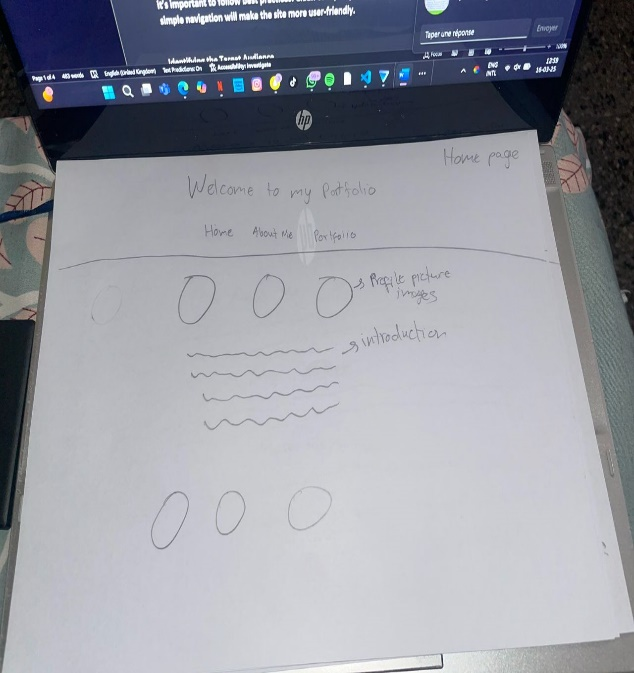 simple navigation will make the site more user-friendly.
Identifying the Target Audience
Taper une réponse
Envoyer
Page 1 of 4 463 words English (United Kingdom) Text Predictions: On Accessibility: Investigate
Focus
100%
ENG
INTL
12:59
16-03-25
hp
Home page
Welcome to my Portfolio
Home About Me Portfolio
Profile picture
images
introduction